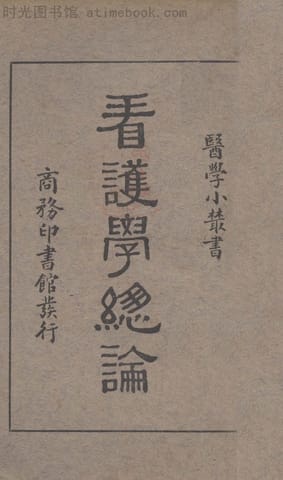 时光图书馆 atimebook.com
醫學小叢書
看護學總論
商務印書館發行